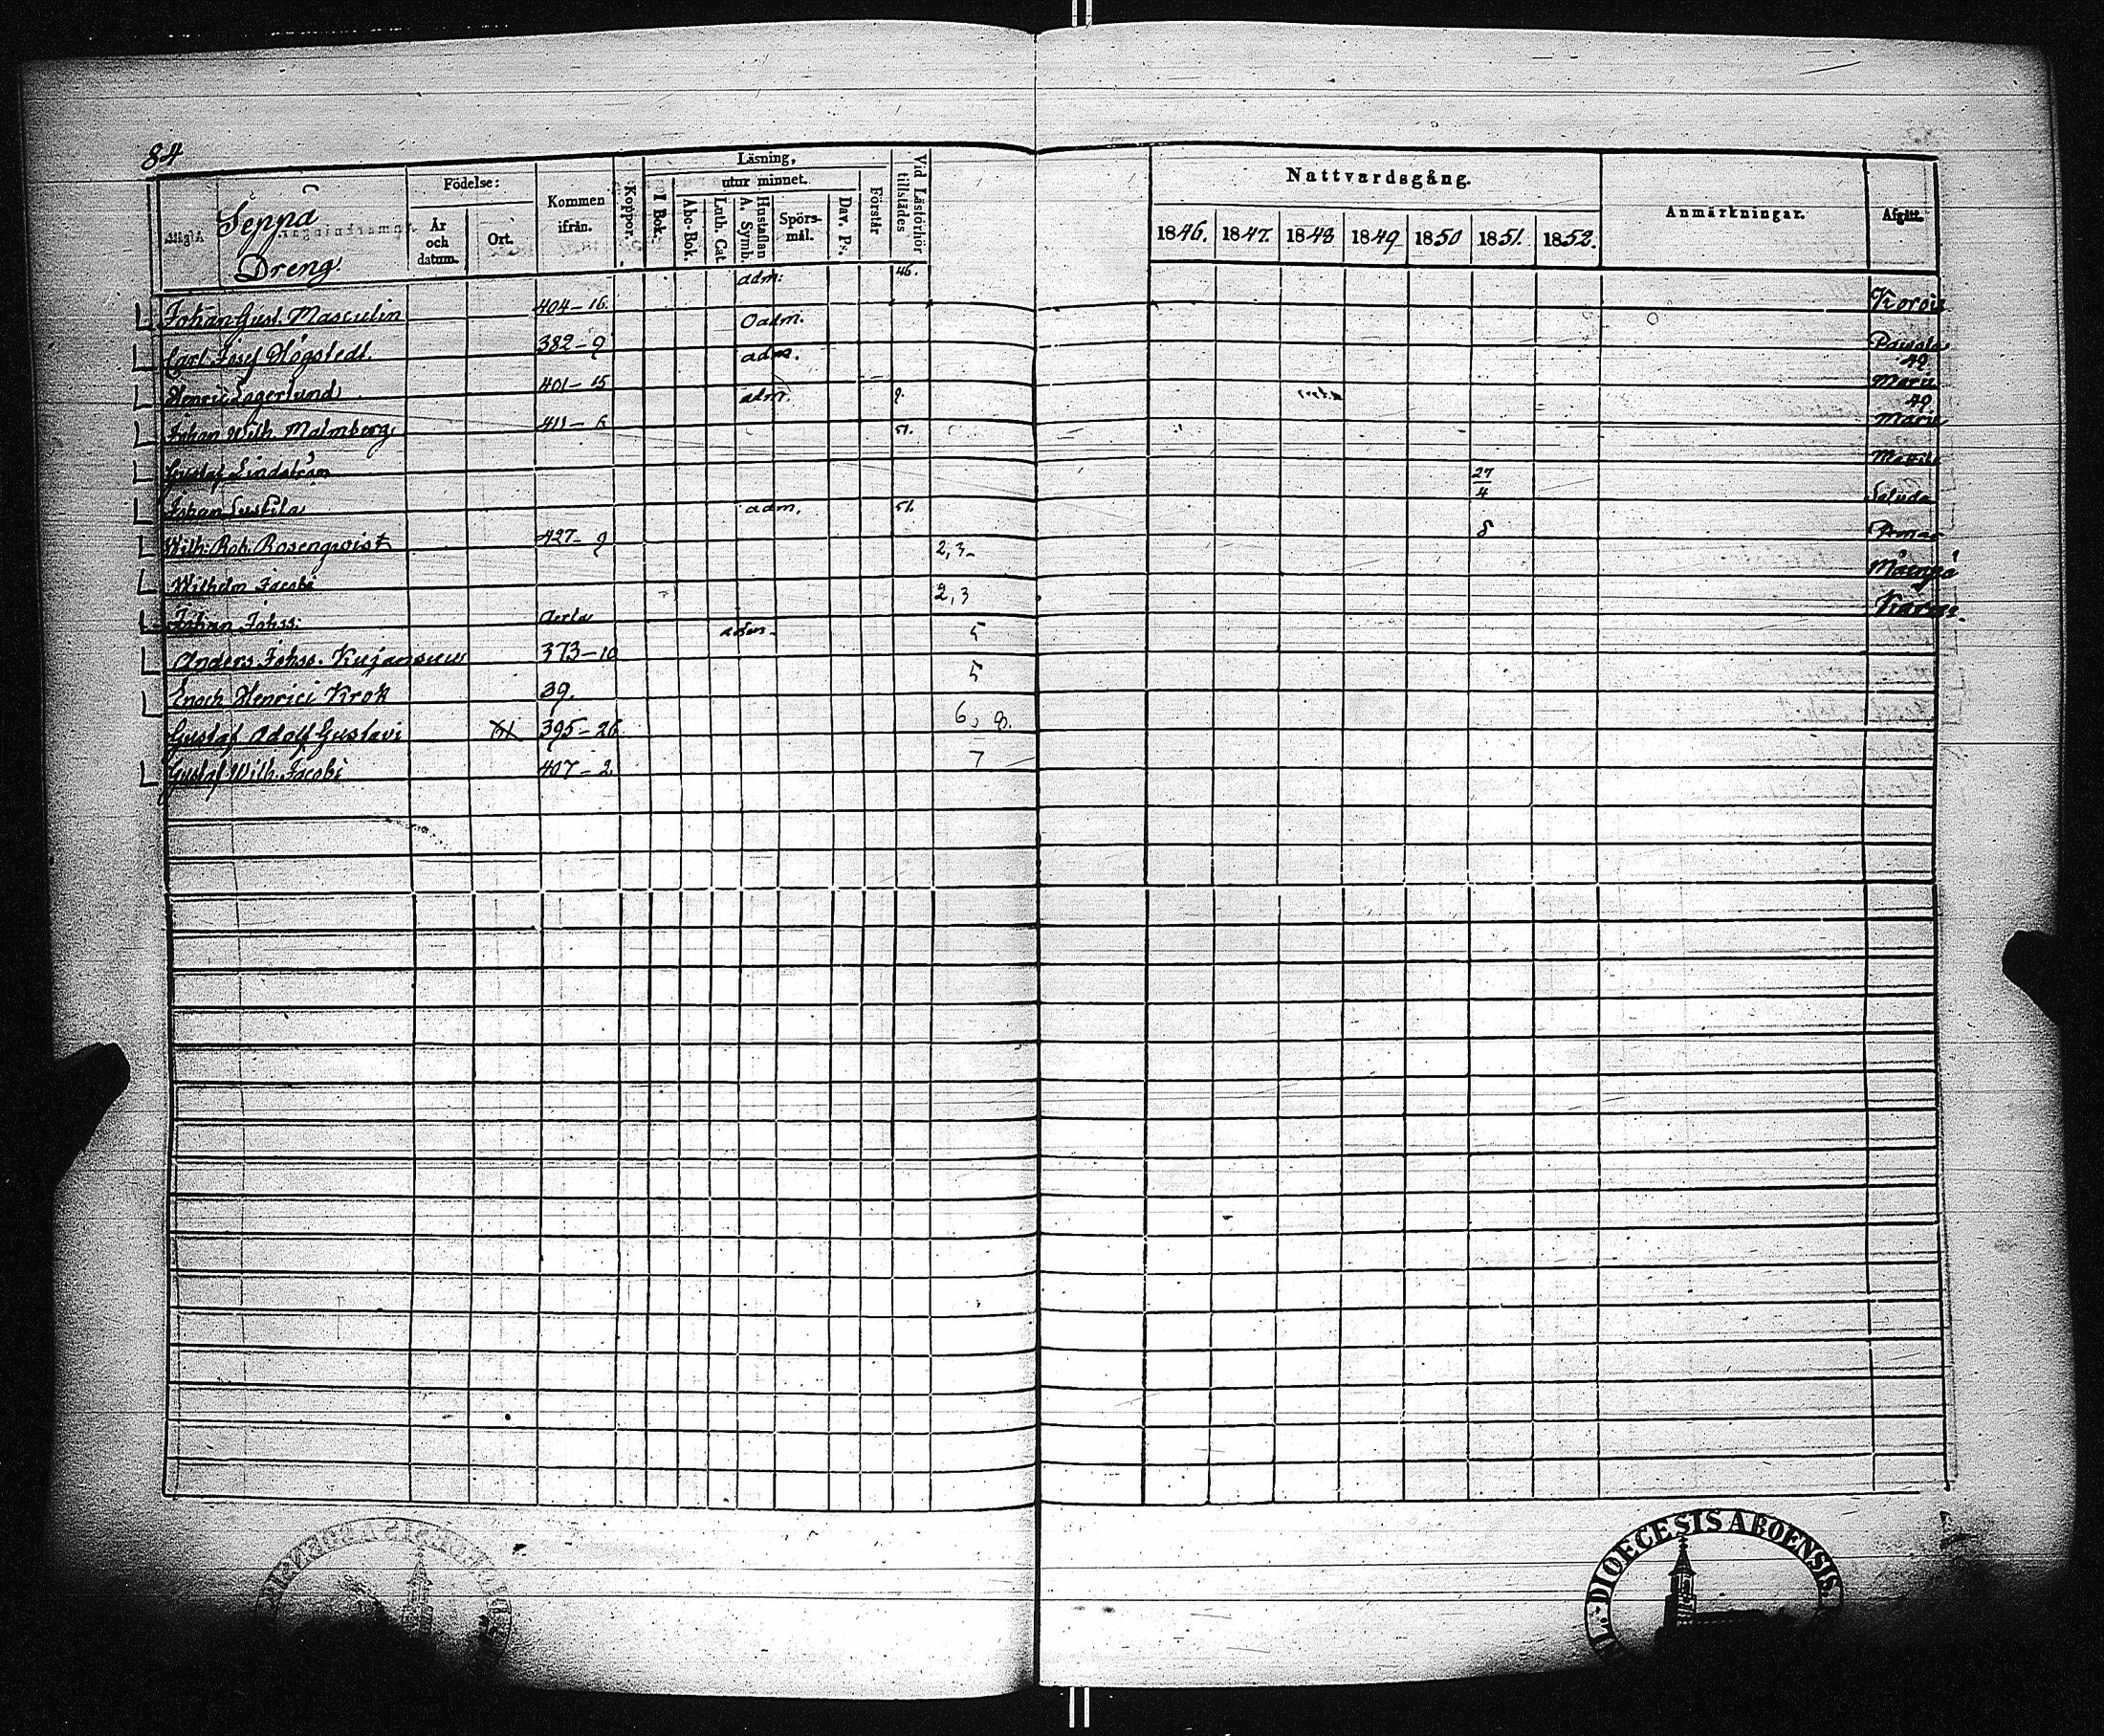 84
Seppä
Dreng.
Födelse:
År och datum.
Ort.
Kommen ifrån.
Koppor.
Läsning,
utur minnet.
I Bok.
Abc-Bok.
Luth. Cat
Hustaflan A. Symb.
Spörs-mål.
Dav. Ps.
Förstår
Vid Läsförhör tillstädes
Nattvardsgång.
1846. 1847. 1848 1849 1850 1851. 1852.
Anmärkningar.
Afgått.
Johan Gust. Masculin 404-16. adm. 46. Korois
Carl Josef Högstedt. 382-9 Oadm.
49
Henric Lagerlund 401-15 adm. Marie
49
Johan Wilh. Malmberg 411-6 adm. 9. Marie
Gustaf Lindström 51.
Johan 27/4
Wilh: Rob: Rosenqvist 427-9 adm. 51. 8
Wilhelm Jacobi 2,3-
Johan Johss: 2,3
Anders Johss. Kujansuu 373-10 adm- 5
Enoch Henrici Krok 39. 5
Gustaf Adolf Gustavi 395-26 6, 8.
Gustaf Wilh. Jacobi 407-2. 7
DIOECESIS ABOENSIS